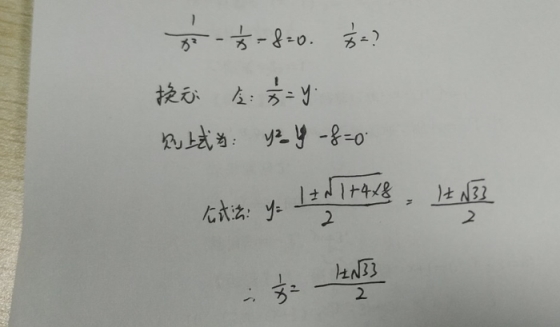 1/x² - 1/x - 8=0. 1/x=?
换元: 令: 1/x = y.
则上式为: y² - y - 8=0.
公式法: y= (1±√(1+4×8))/2 = (1±√33)/2
∴ 1/x = (1±√33)/2